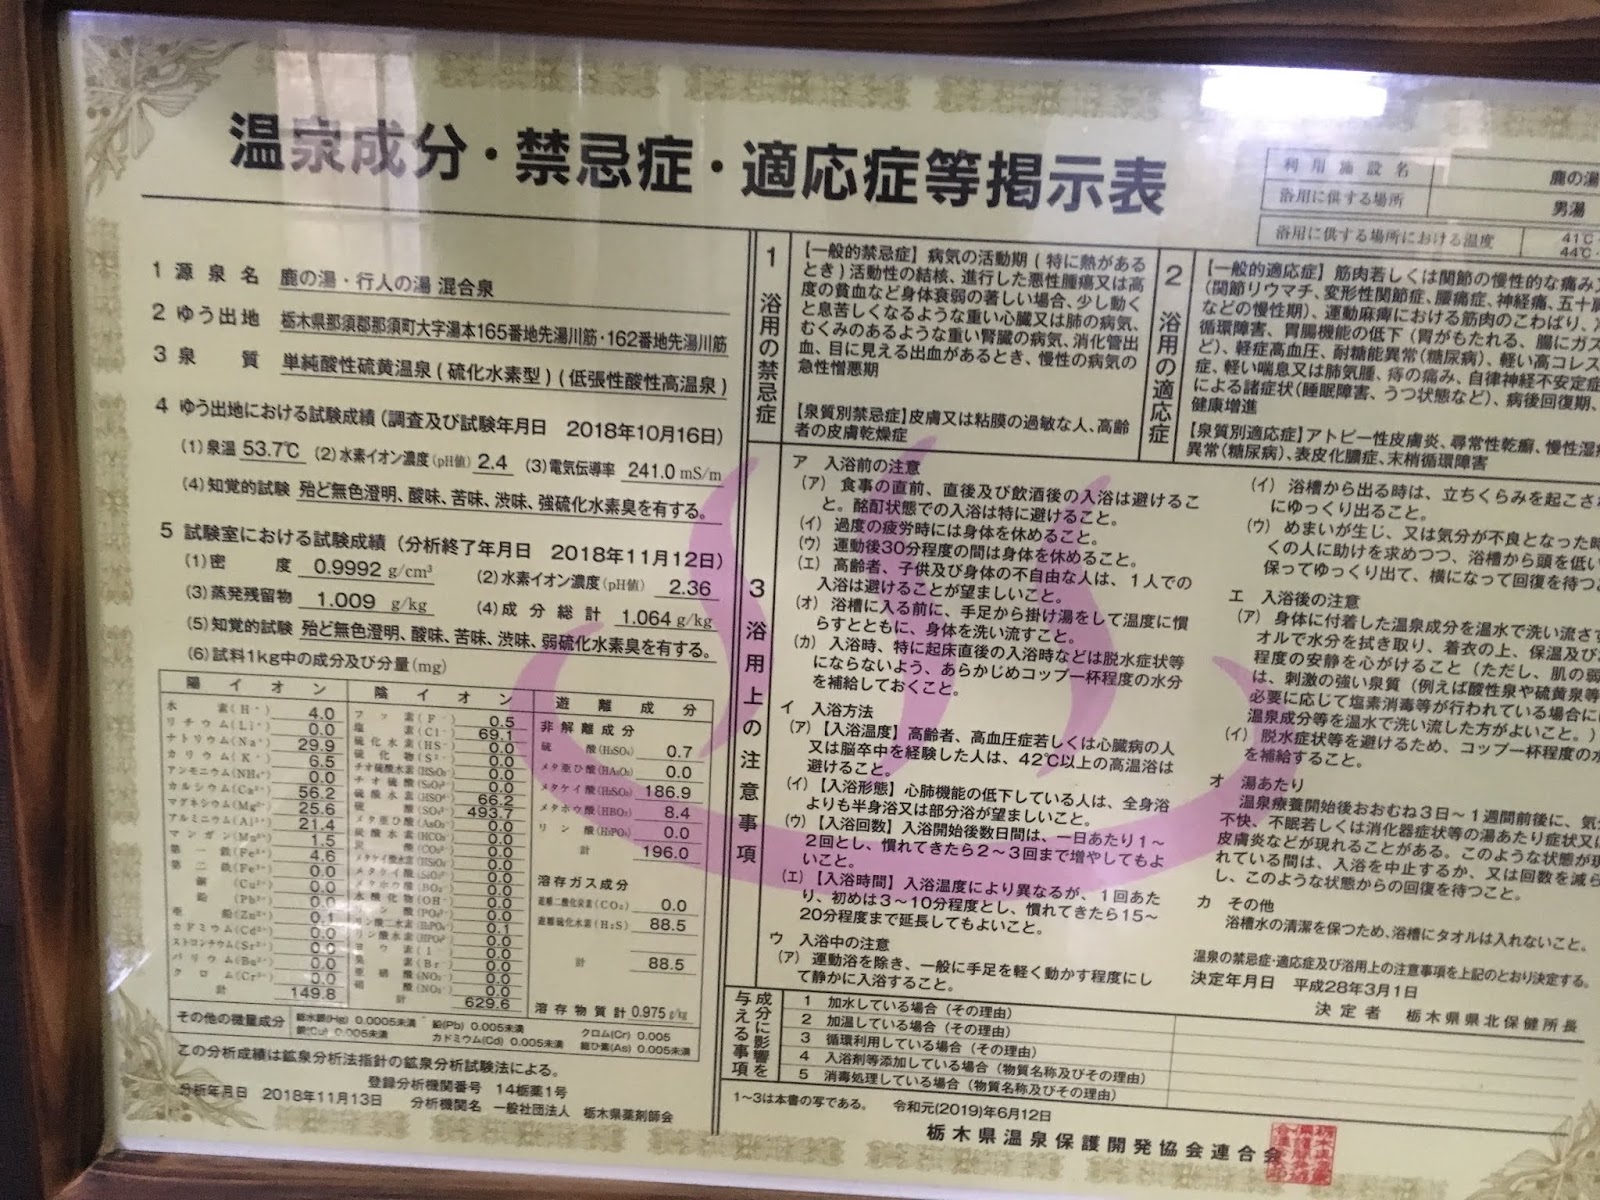 温泉成分・禁忌症・適応症等掲示表
利用施設名 鹿の湯
浴用に供する場所 男湯
浴用に供する場所における温度 41℃
44℃
1 源泉名 鹿の湯・行人の湯 混合泉
2 ゆう出地 栃木県那須郡那須町大字湯本165番地先湯川筋・162番地先湯川筋
3 泉質 単純酸性硫黄温泉(硫化水素型)(低張性酸性高温泉)
4 ゆう出地における試験成績(調査及び試験年月日 2018年10月16日)
(1)泉温 53.7℃ (2)水素イオン濃度(pH値) 2.4 (3)電気伝導率 241.0 mS/m
(4)知覚的試験 殆ど無色澄明、酸味、苦味、渋味、強硫化水素臭を有する。
5 試験室における試験成績(分析終了年月日 2018年11月12日)
(1)密度 0.9992 g/cm³ (2)水素イオン濃度(pH値) 2.36
(3)蒸発残留物 1.009 g/kg (4)成分総計 1.064 g/kg
(5)知覚的試験 殆ど無色澄明、酸味、苦味、渋味、弱硫化水素臭を有する。
(6)試料1kg中の成分及び分量(mg)
陽イオン
水素(H⁺) 4.0
リチウム(Li⁺) 0.0
ナトリウム(Na⁺) 29.9
カリウム(K⁺) 6.5
アンモニウム(NH₄⁺) 0.0
カルシウム(Ca²⁺) 56.2
マグネシウム(Mg²⁺) 25.6
アルミニウム(Al³⁺) 21.4
マンガン(Mn²⁺) 1.5
第一鉄(Fe²⁺) 4.6
第二鉄(Fe³⁺) 0.0
銅(Cu²⁺) 0.0
鉛(Pb²⁺) 0.0
亜鉛(Zn²⁺) 0.1
カドミウム(Cd²⁺) 0.0
ストロンチウム(Sr²⁺) 0.0
バリウム(Ba²⁺) 0.0
クロム(Cr³⁺) 0.0
計 149.8
陰イオン
フッ素(F⁻) 0.5
塩素(Cl⁻) 69.1
硫化水素(HS⁻) 0.0
硫化物(S²⁻) 0.0
チオ硫酸水素(HS₂O₃⁻) 0.0
チオ硫酸(S₂O₃²⁻) 0.0
硫酸水素(HSO₄⁻) 66.2
硫酸(SO₄²⁻) 493.7
メタ亜ひ酸(AsO₂⁻) 0.0
炭酸水素(HCO₃⁻) 0.0
炭酸(CO₃²⁻) 0.0
メタケイ酸水素(HSiO₃⁻) 0.0
メタケイ酸(SiO₃²⁻) 0.0
メタホウ酸(BO₂⁻) 0.0
水酸化物(OH⁻) 0.0
リン酸(PO₄³⁻) 0.0
リン酸二水素(H₂PO₄⁻) 0.1
リン酸水素(HPO₄²⁻) 0.0
ヨウ素(I⁻) 0.0
臭素(Br⁻) 0.0
亜硝酸(NO₂⁻) 0.0
硝酸(NO₃⁻) 0.0
計 629.6
遊離成分
非解離成分
硫酸(H₂SO₄) 0.7
メタ亜ひ酸(HAsO₂) 0.0
メタケイ酸(H₂SiO₃) 186.9
メタホウ酸(HBO₂) 8.4
リン酸(H₃PO₄) 0.0
計 196.0
溶存ガス成分
遊離二酸化炭素(CO₂) 0.0
遊離硫化水素(H₂S) 88.5
計 88.5
溶存物質計 0.975 g/kg
その他の微量成分 総水銀(Hg) 0.0005未満 鉛(Pb) 0.005未満 クロム(Cr) 0.005
銅(Cu) 0.005未満 カドミウム(Cd) 0.005未満 総ひ素(As) 0.005未満
この分析成績は鉱泉分析法指針の鉱泉分析試験法による。
登録分析機関番号 14栃薬1号
分析年月日 2018年11月13日 分析機関名 一般社団法人 栃木県薬剤師会
1 浴用の禁忌症
【一般的禁忌症】病気の活動期(特に熱がある
とき)活動性の結核、進行した悪性腫瘍又は高
度の貧血など身体衰弱の著しい場合、少し動く
と息苦しくなるような重い心臓又は肺の病気、
むくみのあるような重い腎臓の病気、消化管出
血、目に見える出血があるとき、慢性の病気の
急性憎悪期
【泉質別禁忌症】皮膚又は粘膜の過敏な人、高齢
者の皮膚乾燥症
2 浴用の適応症
【一般的適応症】筋肉若しくは関節の慢性的な痛み
(関節リウマチ、変形性関節症、腰痛症、神経痛、五十肩
などの慢性期)、運動麻痺における筋肉のこわばり、
循環障害、胃腸機能の低下(胃がもたれる、腸にガス
ど)、軽症高血圧、耐糖能異常(糖尿病)、軽い高コレス
症、軽い喘息又は肺気腫、痔の痛み、自律神経不安定症
による諸症状(睡眠障害、うつ状態など)、病後回復期、
健康増進
【泉質別適応症】アトピー性皮膚炎、尋常性乾癬、慢性湿
異常(糖尿病)、表皮化膿症、末梢循環障害
3 浴用上の注意事項
ア 入浴前の注意
(ア)食事の直前、直後及び飲酒後の入浴は避けるこ
と。酩酊状態での入浴は特に避けること。
(イ)過度の疲労時には身体を休めること。
(ウ)運動後30分程度の間は身体を休めること。
(エ)高齢者、子供及び身体の不自由な人は、1人での
入浴は避けることが望ましいこと。
(オ)浴槽に入る前に、手足から掛け湯をして温度に慣
らすとともに、身体を洗い流すこと。
(カ)入浴時、特に起床直後の入浴時などは脱水症状等
にならないよう、あらかじめコップ一杯程度の水分
を補給しておくこと。
イ 入浴方法
(ア)【入浴温度】高齢者、高血圧症若しくは心臓病の人
又は脳卒中を経験した人は、42℃以上の高温浴は
避けること。
(イ)【入浴形態】心肺機能の低下している人は、全身浴
よりも半身浴又は部分浴が望ましいこと。
(ウ)【入浴回数】入浴開始後数日間は、一日あたり1~
2回とし、慣れてきたら2~3回まで増やしてもよ
いこと。
(エ)【入浴時間】入浴温度により異なるが、1回あた
り、初めは3~10分程度とし、慣れてきたら15~
20分程度まで延長してもよいこと。
ウ 入浴中の注意
(ア)運動浴を除き、一般に手足を軽く動かす程度にし
て静かに入浴すること。
(イ)浴槽から出る時は、立ちくらみを起こさ
にゆっくり出ること。
(ウ)めまいが生じ、又は気分が不良となった時
くの人に助けを求めつつ、浴槽から頭を低い
保ってゆっくり出て、横になって回復を待つこ
エ 入浴後の注意
(ア)身体に付着した温泉成分を温水で洗い流さず
オルで水分を拭き取り、着衣の上、保温及び
程度の安静を心がけること(ただし、肌の弱
は、刺激の強い泉質(例えば酸性泉や硫黄泉等
必要に応じて塩素消毒等が行われている場合に
温泉成分等を温水で洗い流した方がよいこと。)
(イ)脱水症状等を避けるため、コップ一杯程度の水
を補給すること。
オ 湯あたり
温泉療養開始後おおむね3日~1週間前後に、気
不快、不眠若しくは消化器症状等の湯あたり症状又は
皮膚炎などが現れることがある。このような状態が現
れている間は、入浴を中止するか、又は回数を減ら
し、このような状態からの回復を待つこと。
カ その他
浴槽水の清潔を保つため、浴槽にタオルは入れないこと。
温泉の禁忌症・適応症及び浴用上の注意事項を上記のとおり決定する。
決定年月日 平成28年3月1日
決定者 栃木県県北保健所長
成分に影響を与える事項
1 加水している場合(その理由)
2 加温している場合(その理由)
3 循環利用している場合(その理由)
4 入浴剤等添加している場合(物質名称及びその理由)
5 消毒処理している場合(物質名称及びその理由)
1~3は本書の写である。 令和元(2019)年6月12日
栃木県温泉保護開発協会連合会